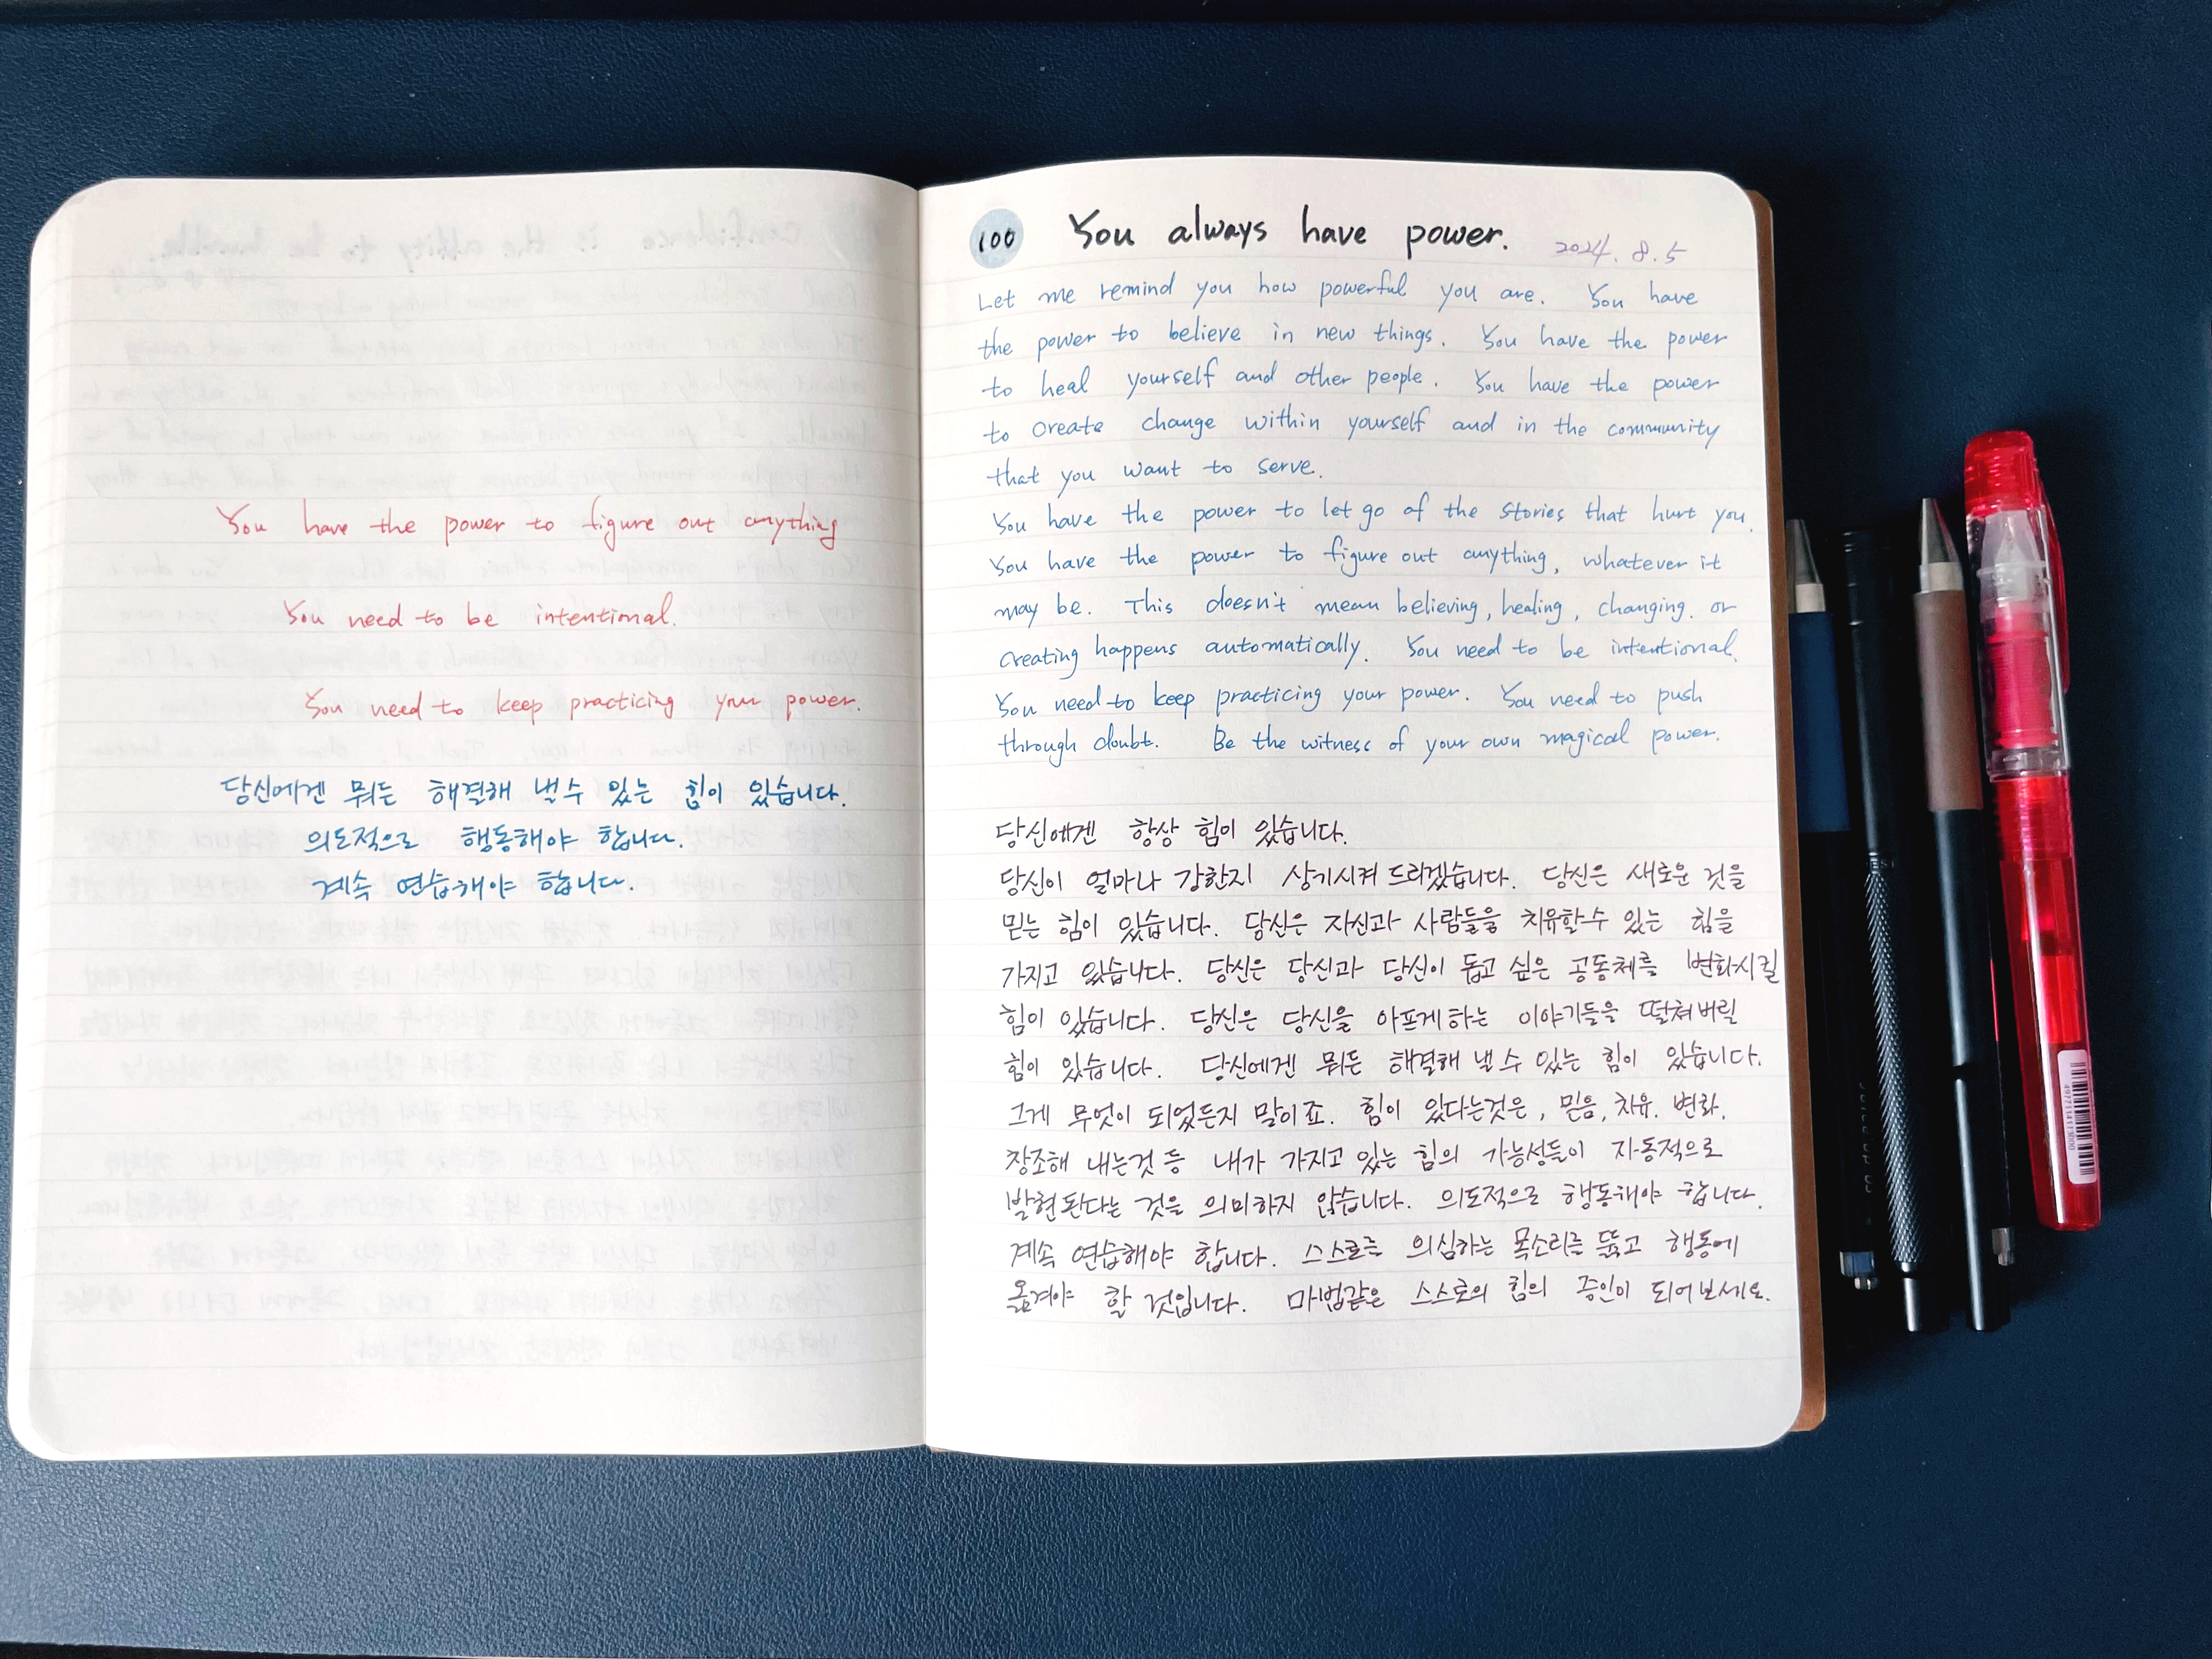 You have the power to figure out anything
You need to be intentional.
You need to keep practicing your power.
당신에겐 뭐든 해결해 낼수 있는 힘이 있습니다.
의도적으로 행동해야 합니다.
계속 연습해야 합니다.
100 You always have power. 2024. 8. 5
Let me remind you how powerful you are. You have
the power to believe in new things. You have the power
to heal yourself and other people. You have the power
to create change within yourself and in the community
that you want to serve.
You have the power to let go of the stories that hurt you.
You have the power to figure out anything, whatever it
may be. This doesn't mean believing, healing, changing. or
creating happens automatically. You need to be intentional.
You need to keep practicing your power. You need to push
through doubt. Be the witness of your own magical power.
당신에겐 항상 힘이 있습니다.
당신이 얼마나 강한지 상기시켜 드리겠습니다. 당신은 새로운 것을
믿는 힘이 있습니다. 당신은 자신과 사람들을 치유할수 있는 힘을
가지고 있습니다. 당신은 당신과 당신이 돕고 싶은 공동체를 변화시킬
힘이 있습니다. 당신은 당신을 아프게하는 이야기들을 떨쳐버릴
힘이 있습니다. 당신에겐 뭐든 해결해 낼 수 있는 힘이 있습니다.
그게 무엇이 되었든지 말이죠. 힘이 있다는것은, 믿음, 치유. 변화.
창조해 내는것 등 내가 가지고 있는 힘의 가능성들이 자동적으로
발현된다는 것을 의미하지 않습니다. 의도적으로 행동해야 합니다.
계속 연습해야 합니다. 스스로를 의심하는 목소리를 뚫고 행동에
옮겨야 할 것입니다. 마법같은 스스로의 힘의 증인이 되어보세요.